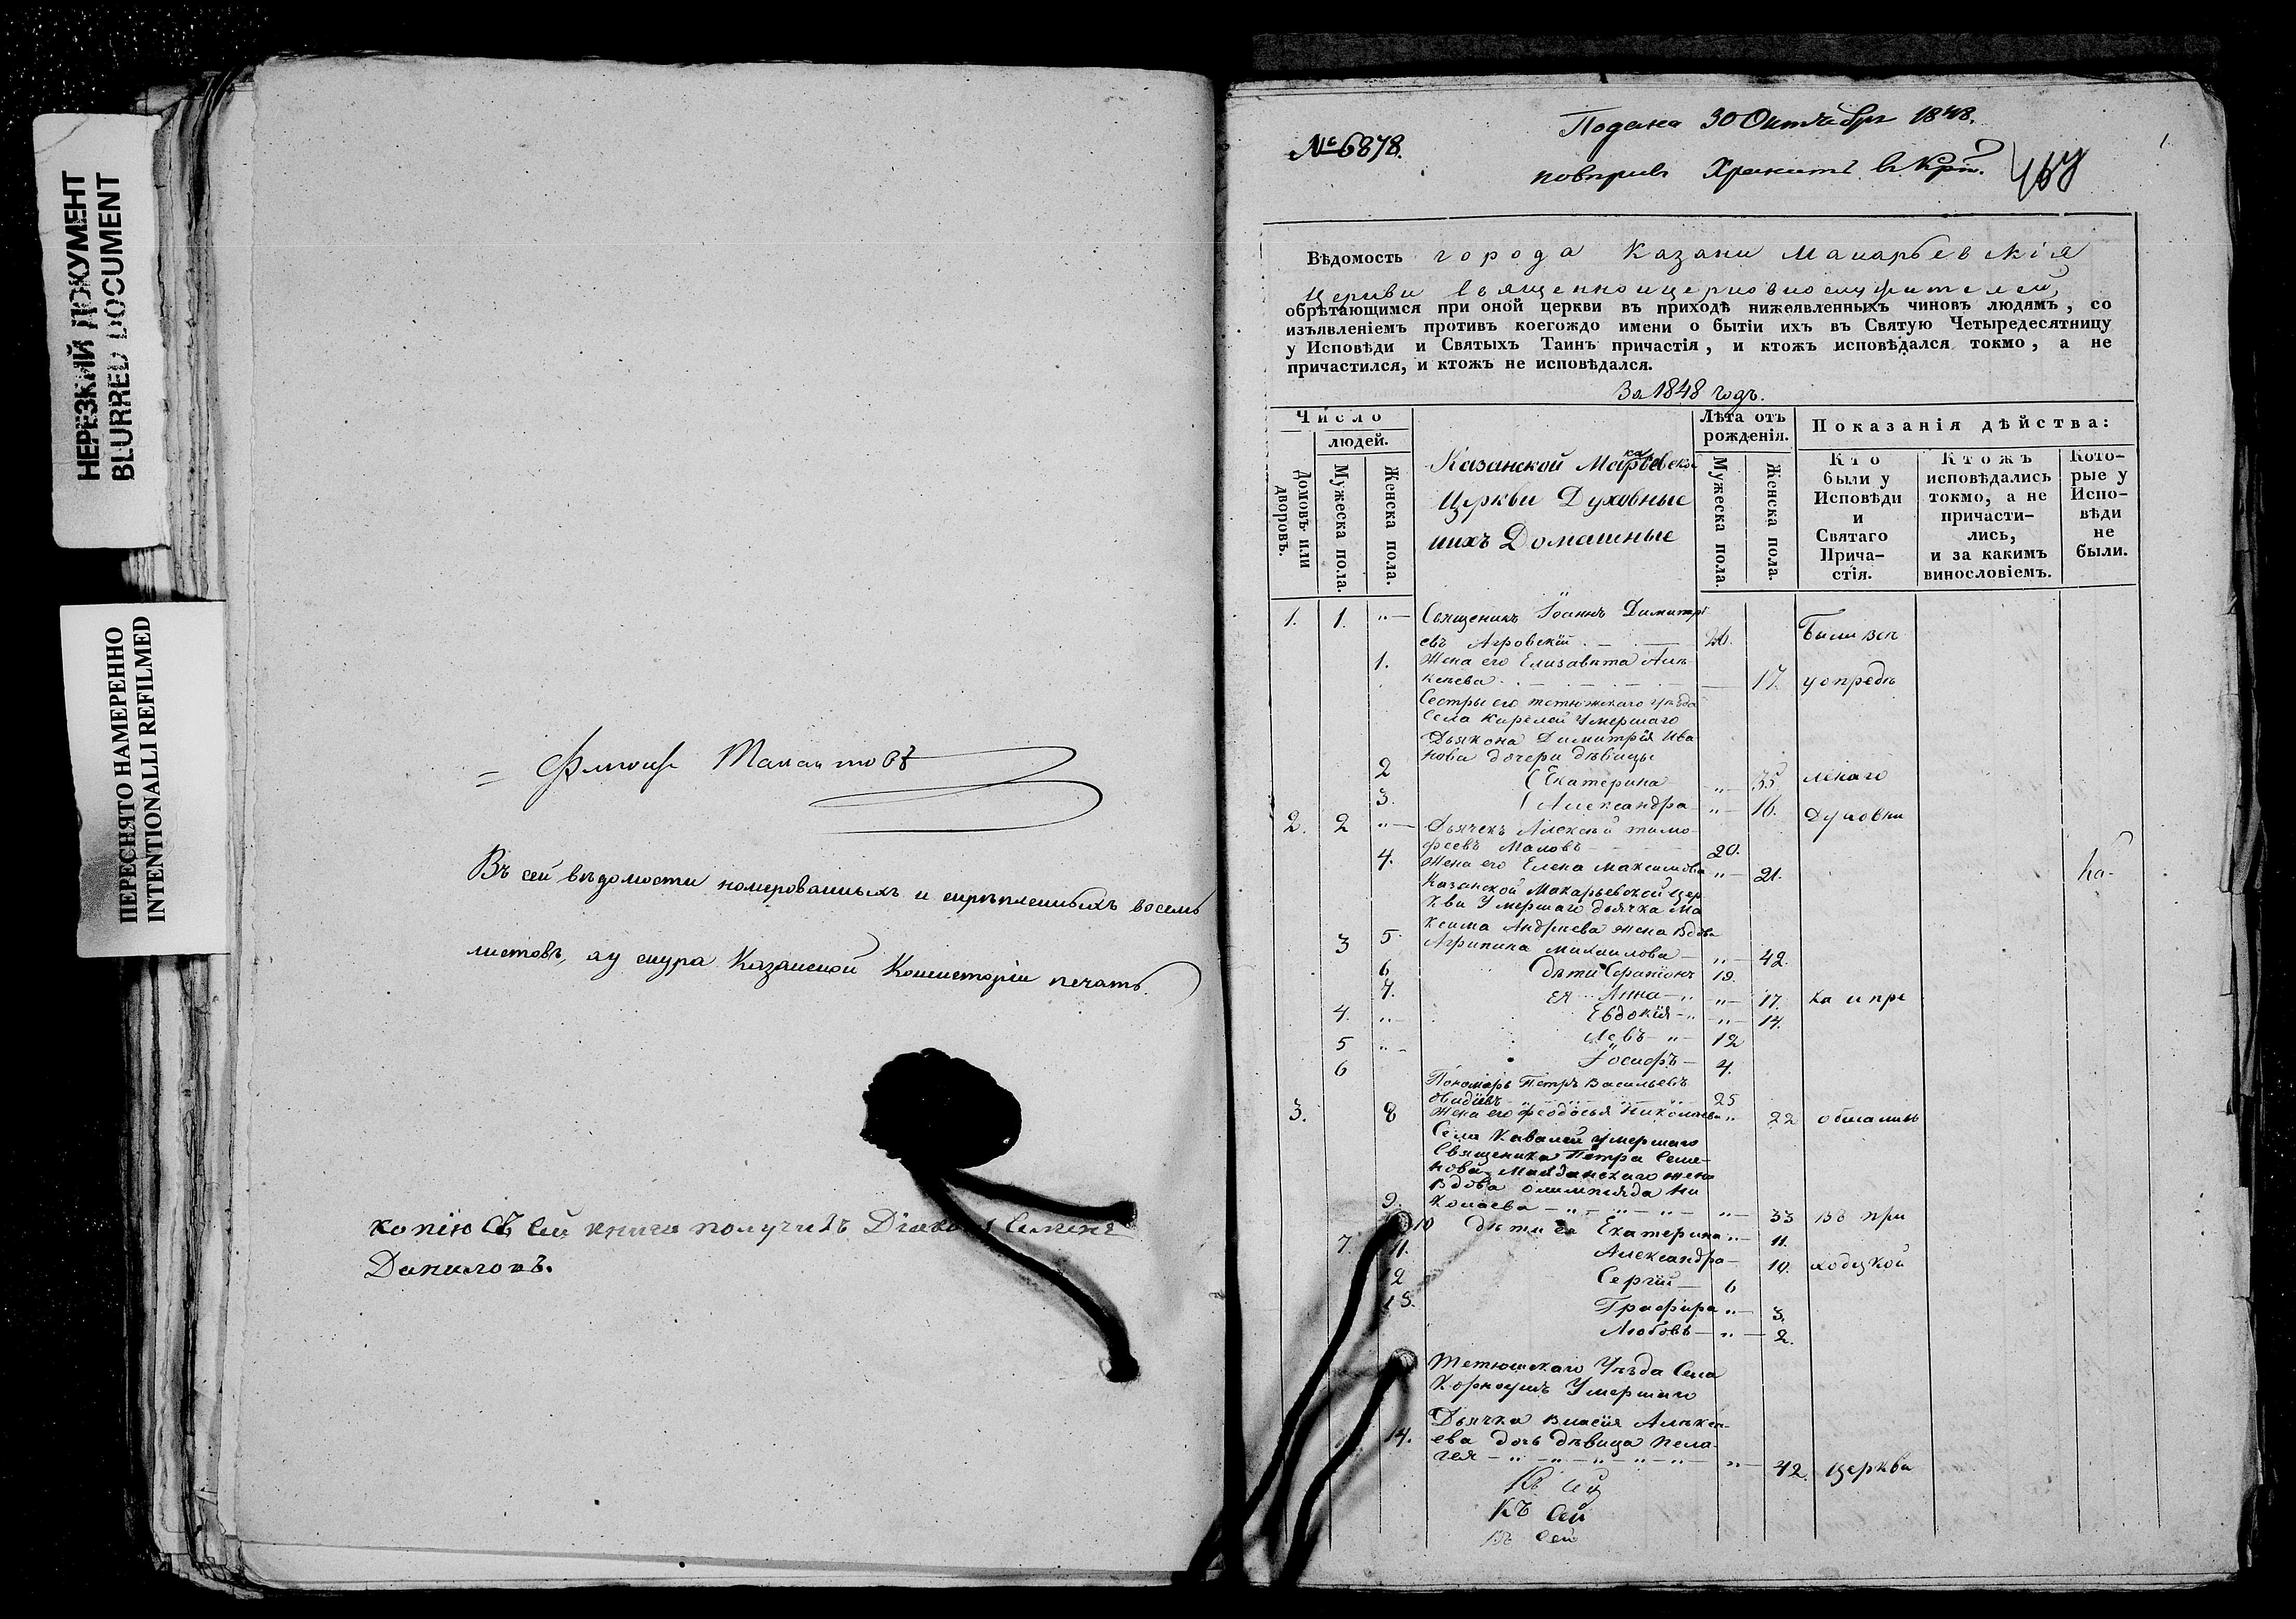 НЕРЕЗКИЙ ДОКУМЕНТ
BLURRED DOCUMENT
ПЕРЕСНЯТО НАМЕРЕННО
INTENTIONALLI REFILMED
Въ сей вѣдомости номерованныхъ и скрѣпленныхъ восемь
листовъ, Казанской Консисторіи печать.
копію съ сей книги получилъ Діаконъ Семенъ
Даниловъ.
№ 6878.
Подана 30 Октября 1848.
Хранить
Вѣдомость города Казани Макарьевскія
Церкви священноицерковнослужителей,
обрѣтающимся при оной церкви въ приходѣ нижеявленныхъ чиновъ людямъ, со
изъявленіемъ противъ коегождо имени о бытіи ихъ въ Святую Четыредесятницу
у Исповѣди и Святыхъ Таинъ причастія, и ктожъ исповѣдался токмо, а не
причастился, и ктожъ не исповѣдался.
За 1848 годъ.
Число
людей.
Домовъ или дворовъ.
Мужеска пола.
Женска пола.
Казанской Макарьевской
Церкви Духовные
ихъ Домашные
Лѣта отъ рожденія.
Мужеска пола.
Женска пола.
Показанія дѣйства:
Кто были у Исповѣди и Святаго Прича-стія.
Ктожъ исповѣдались токмо, а не причасти-лись, и за какимъ винословіемъ.
Кото-рые у Испо-вѣди не были.
1. 1. "— Священикъ Іоаннъ Димитрі
евъ Агровскій 26. Были всѣ
1. Жена его Елизавета Але
ксѣева 17. у опредѣ
Сестры его тетюжскаго уѣзда
Села Кирелей Умершаго
Дьякона Димитрія Ива
нова дочери дѣвицы
2 Екатерина "— 35. леннаго
3. Александра "— 16. Духовни
2. 2 "— Дьячекъ Алексѣй тимо
феевъ Маловъ 20.
4. Жена его Елена Максимова "— 21.
Казанской Макарьевской Цер
кви Умершаго дьячка Ма
ксима Андреева жена Вдова
3 5. Агрипина Михаилова "— 42.
6 дѣти Серапіонъ 19.
7. ея Анна "— 17. ка и при
4. " Евдокія "— 14.
5 " Левъ 12
6 Іосифъ 4.
Пономарь Петръ Васильевъ
25
3. 8 Жена его Феодосья Николаева " 22
Села Кавалей умершаго
Священика Петра Семе-
нова Майданскаго жена
Вдова олимпіяда Ни
9. колаева "— 33 въ при
10 дѣти ея Екатерина "— 11.
7. 11. Александра— 10. ходской
12 Сергій— 6
13. Графира "— 3.
Любовь— "— 2.
Тетюшскаго Уѣзда Села
Корноухъ Умершаго
Дьячка Власія Алексѣ-
14. ева дочь дѣвица Пела-
гея "— 42. Церкви
Къ сей
Къ Сей
Къ Сей